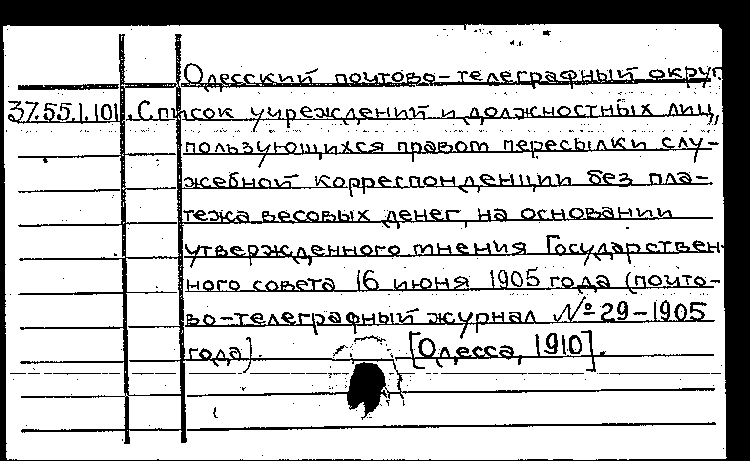 Одесский почтово-телеграфный округ.
37.55.1.101. Список учреждений и должностных лиц,
пользующихся правом пересылки слу-
жебной корреспонденции без пла-
тежа весовых денег, на основании
утвержденного мнения Государствен-
ного совета 16 июня 1905 года (почто-
во-телеграфный журнал № 29-1905
года). [Одесса, 1910].